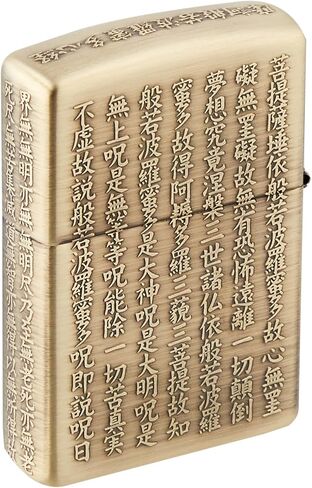 摩訶般若波羅蜜多心経
菩提薩埵依般若波羅蜜多故心無罣
礙無罣礙故無有恐怖遠離一切顛倒
夢想究竟涅槃三世諸仏依般若波羅
蜜多故得阿耨多羅三藐三菩提故知
般若波羅蜜多是大神呪是大明呪是
無上呪是無等等呪能除一切苦真実
不虚故説般若波羅蜜多呪即説呪曰
界無無明亦無無明尽乃至無老死亦無
死尽無苦集滅道無智亦無得